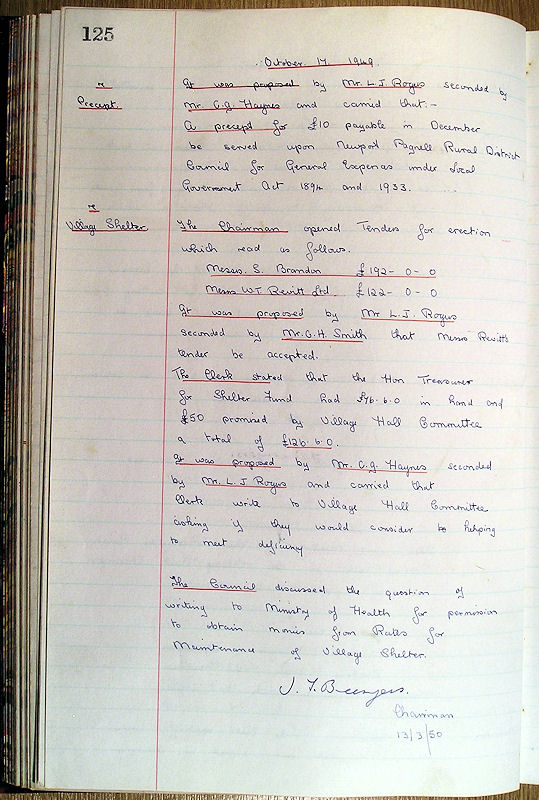 125
October 17. 1949.
Precept.
It was proposed by Mr. L. J. Rogers seconded by
Mr. C. G. Haynes and carried that:-
A precept for £10 payable in December
be served upon Newport Pagnell Rural District
Council for General Expenses under Local
Government Act 1894 and 1933.
Village Shelter.
The Chairman opened Tenders for erection
which read as follows.
Messrs. S. Brandon £192- 0- 0
Messrs W.T. Revitt Ltd. £122- 0- 0
It was proposed by Mr L. J. Rogers
seconded by Mr. C. H. Smith that Messrs Revitt's
tender be accepted.
The Clerk stated that the Hon Treasurer
for Shelter Fund had £76. 6. 0 in hand and
£50 promised by Village Hall Committee
a total of £126. 6. 0.
It was proposed by Mr. C. G. Haynes seconded
by Mr. L. J. Rogers and carried that
Clerk write to Village Hall Committee
asking if they would consider to helping
to meet deficiency
The Council discussed the question of
writing to Ministry of Health for permission
to obtain monies from Rates for
Maintenance of Village Shelter.
Chairman
13/3/50